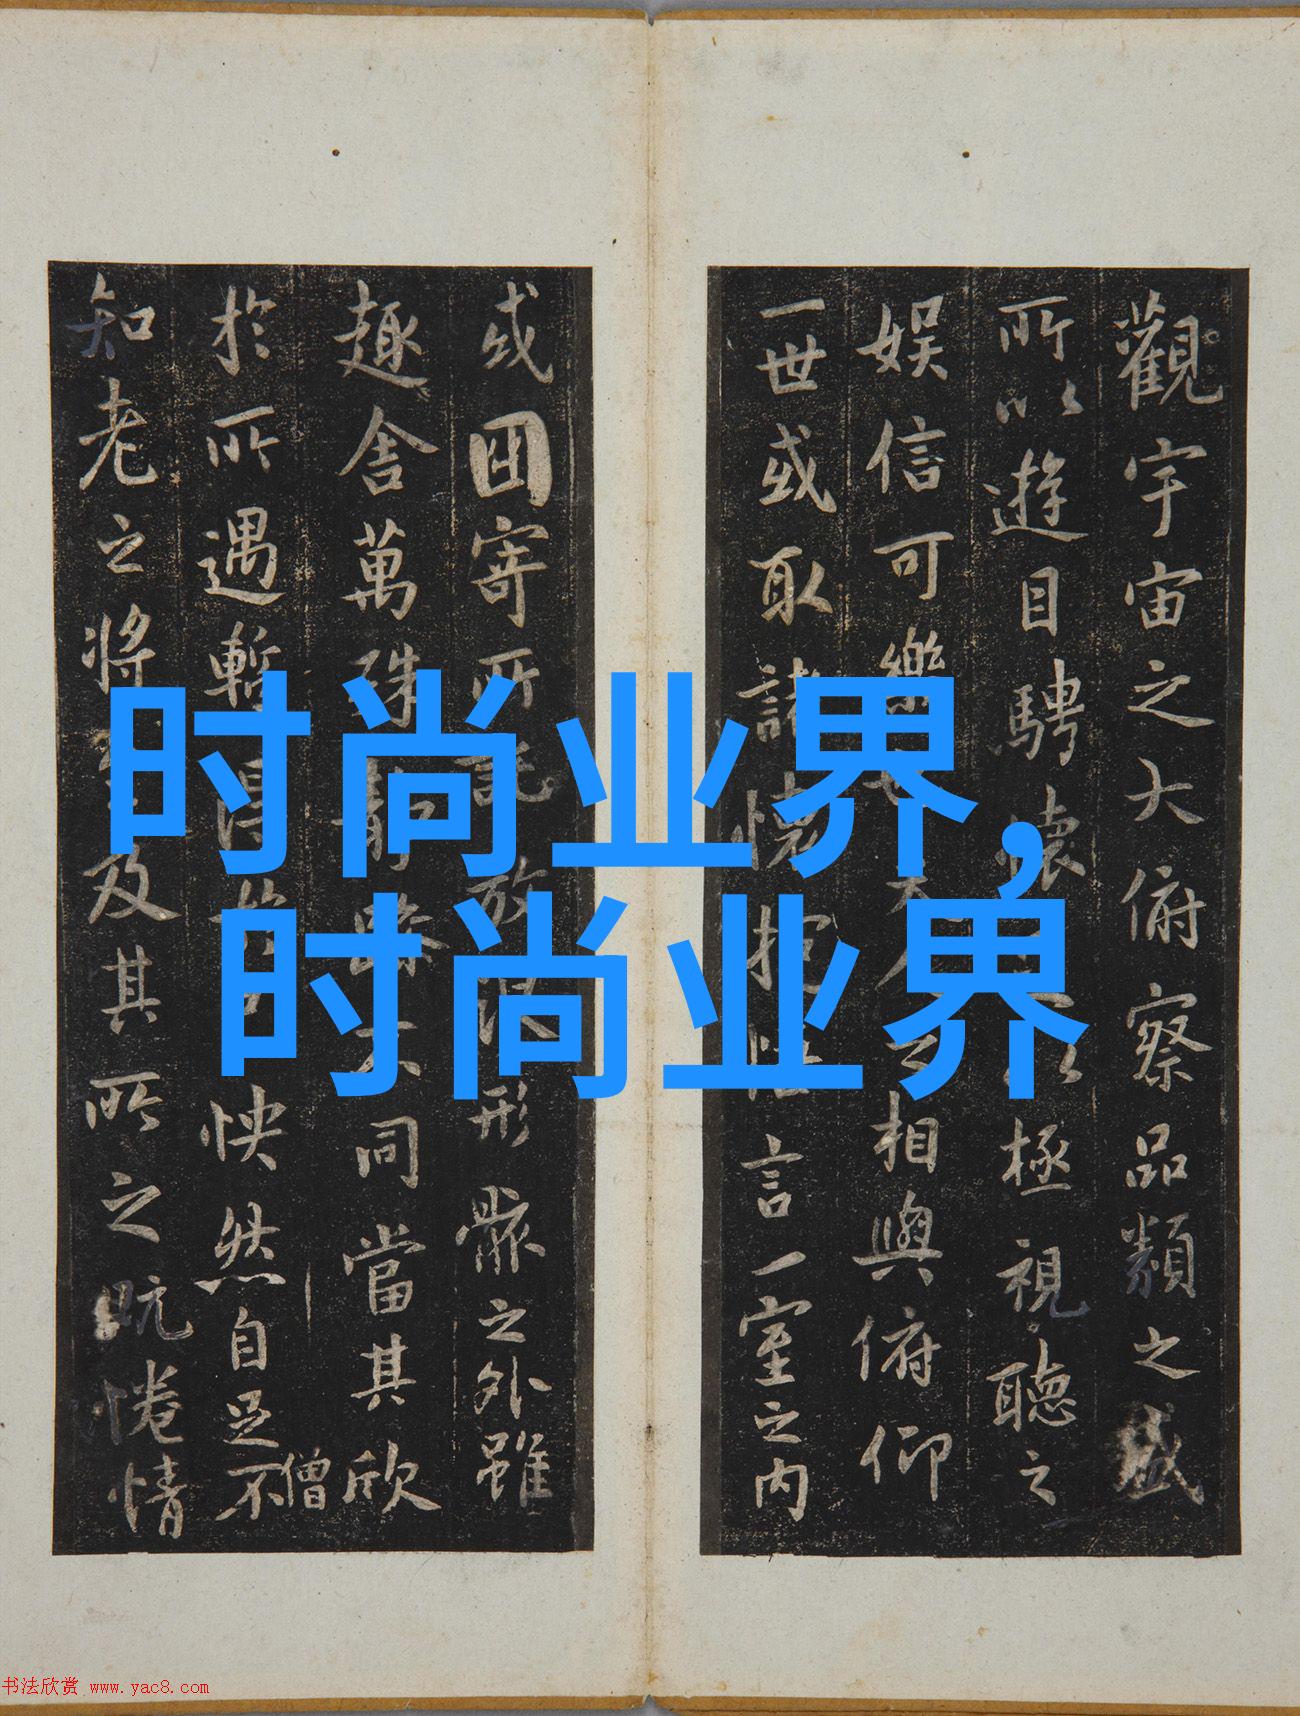 觀宇宙之大俯察品類之盛
所以遊目騁懷以極視聽之
娱信可樂夫人之相與俯仰
一世或取諸懷抱悟言一室之内
或因寄所託放浪形骸之外雖
趣舍萬殊静躁不同當其欣
僧
於所遇暫得於快然自足不
知老之將至及其所之既惓情
时尚业界,
时尚业界
书法欣赏 www.yac8.com